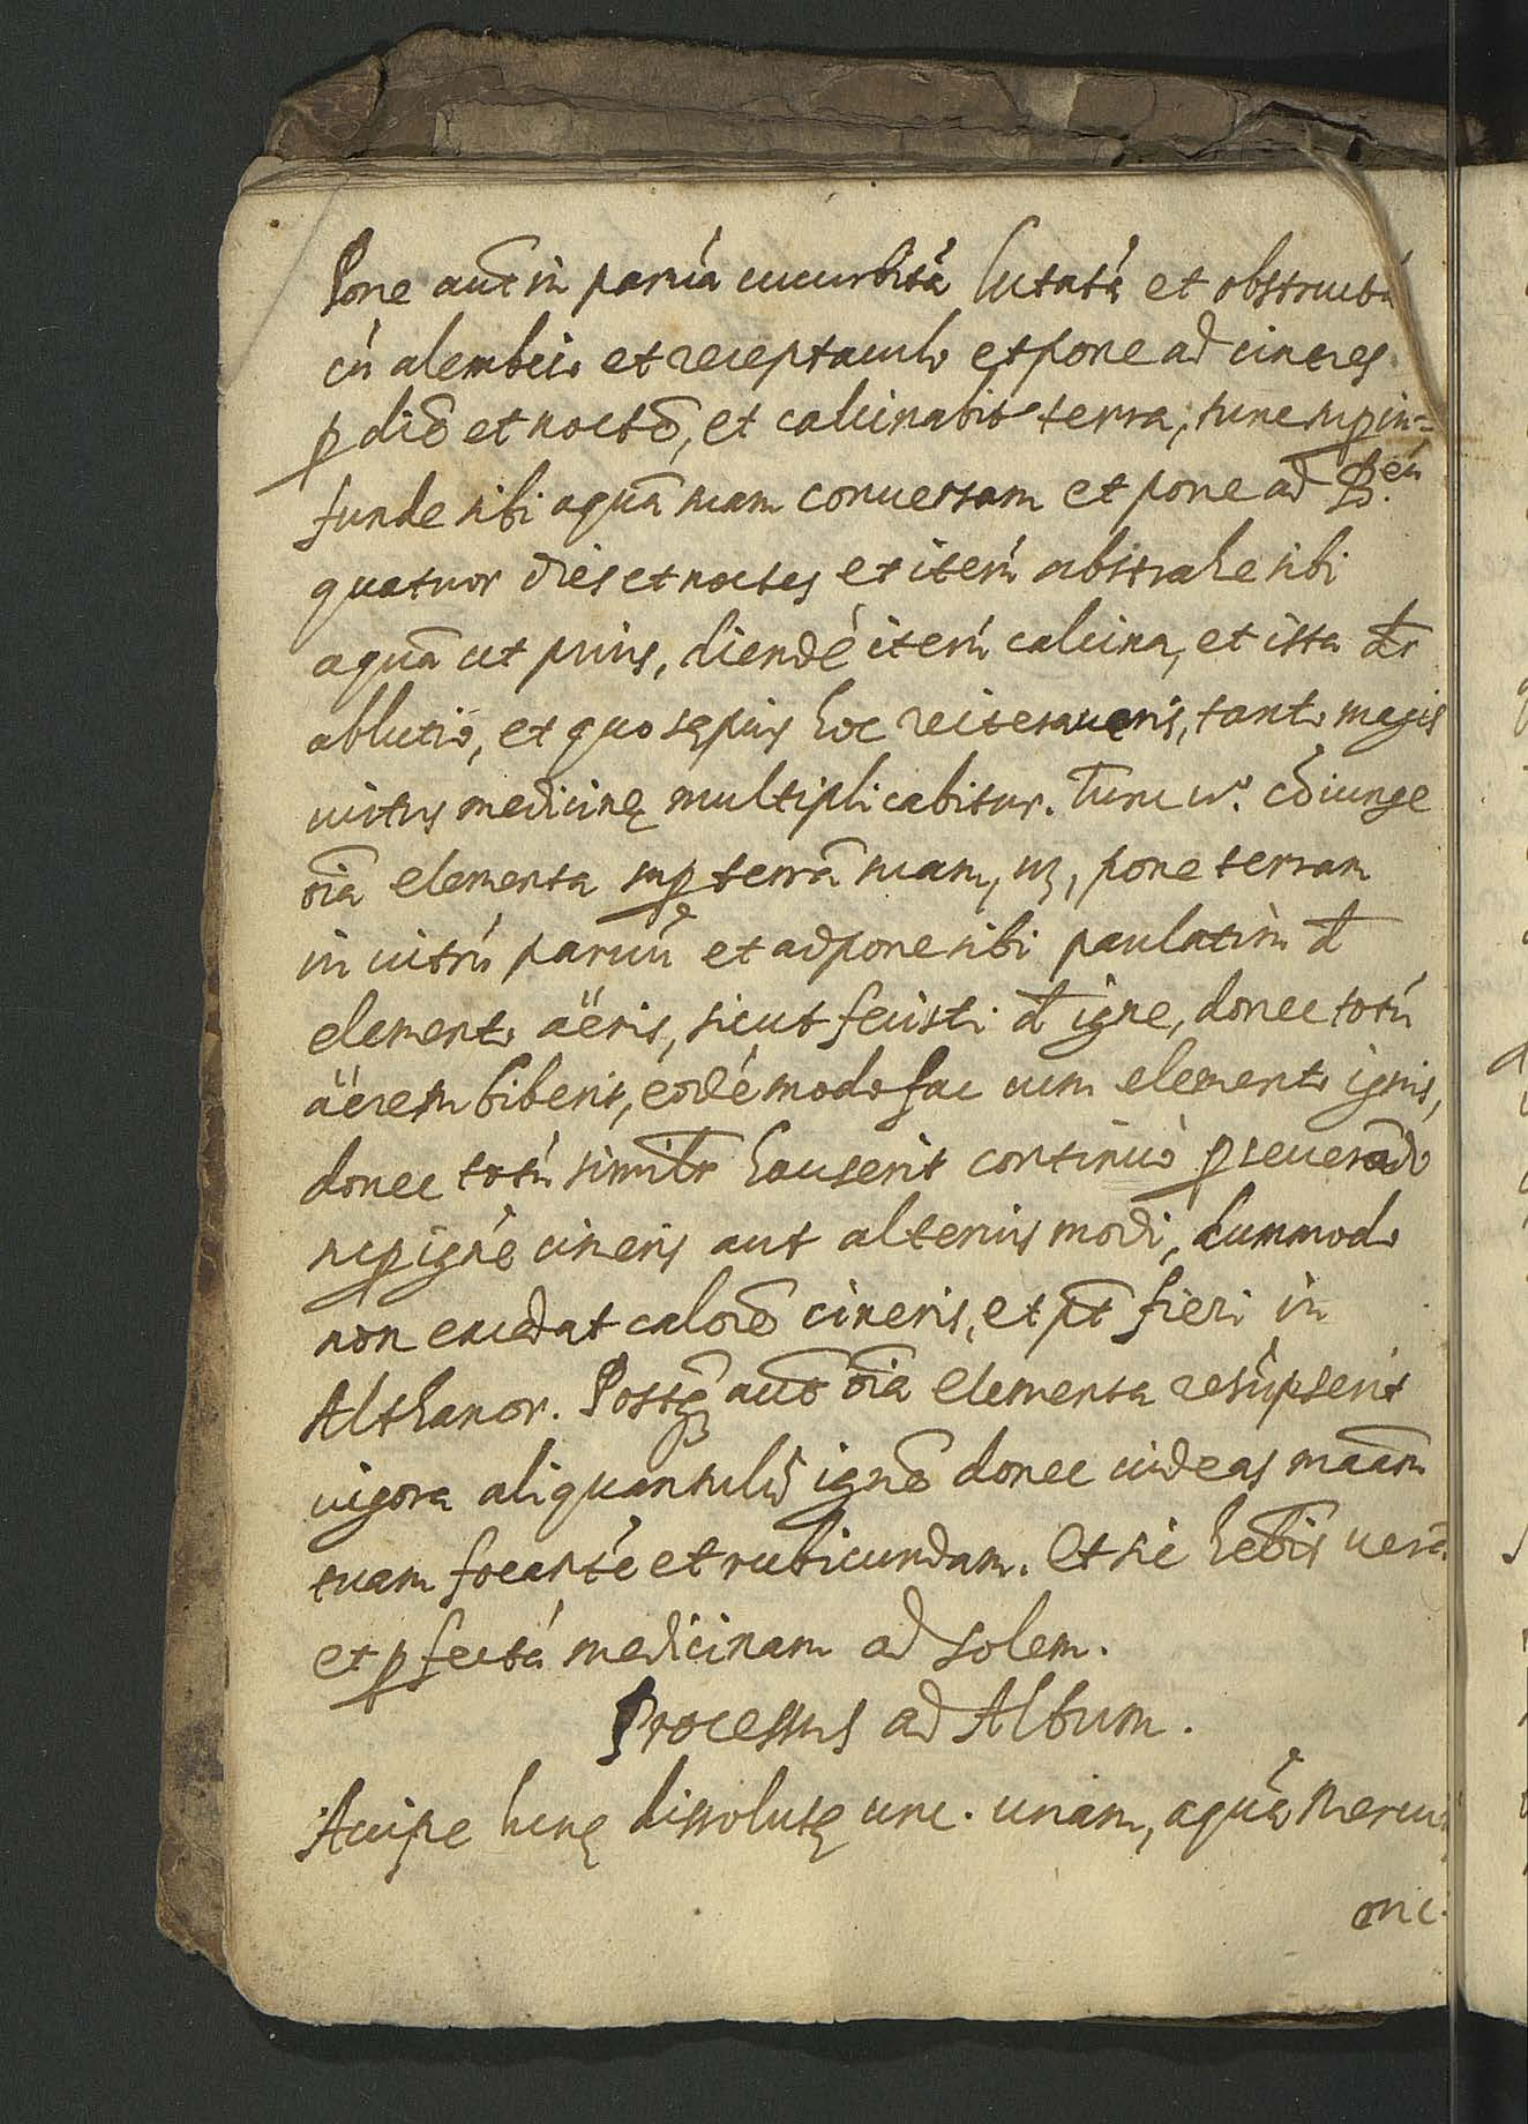 Pone aut̄ in paruā cucurbitā lutatā et obstructā
cū alembico et receptaculo et pone ad cineres
p diē et noctē, et calcinabit̄ terra, tunc sup in=
funde sibi aquā suam conuersam et pone ad B.eū
quatuor dies et noctes et iterū abstrahe sibi
aquā ut prius, diendé iterū calcina, et ista dr̄
ablutio, et quo sępius hoc reiteraueris, tanto magis
uirtus medicinę multiplicabitur. Tunc v.º cōiunge
oīa elementa sup terrā suam, uz, pone terram
in uitrū paruū et adpone sibi paulatim đ
elemento aëris, sicut fecisti đ igne, donec totū
aërem biberit, eodē modo fac cum elemento ignis,
donec totū similr̄ hauserit continuò pseuerādo
sup ignē cineris aut alterius modi, dummodo
non excedat calorē cineris, et pt̄ fieri in
Althanor. Postq̄ aut̄ oīa elementa resūpserit
uigora aliquantulū ignē donec uideas māam
tuam focantē et rubicundam. Et sic hēbis uerā
et pfectā medicinam ad solem.
Processus ad Album.
Accipe lunę dissolutę unc. unam, aquę Mercu
onc.